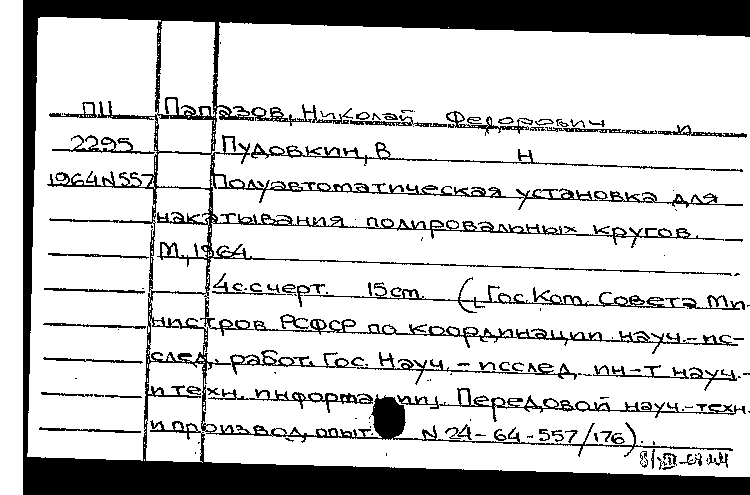 П11 Папазов, Николай Федорович и
2295 Пудовкин, В Н
1964N557 Полуавтоматическая установка для
накатывания полировальных кругов.
М., 1964.
4с.с черт. 15см. (Гос. Ком. Совета Ми-
нистров РСФСР по координации науч.-ис-
след. работ. Гос. Науч.-исслед. ин-т науч.-
и техн. информации. Передовой науч.-техн.
и производ. опыт. N 24-64-557/176).